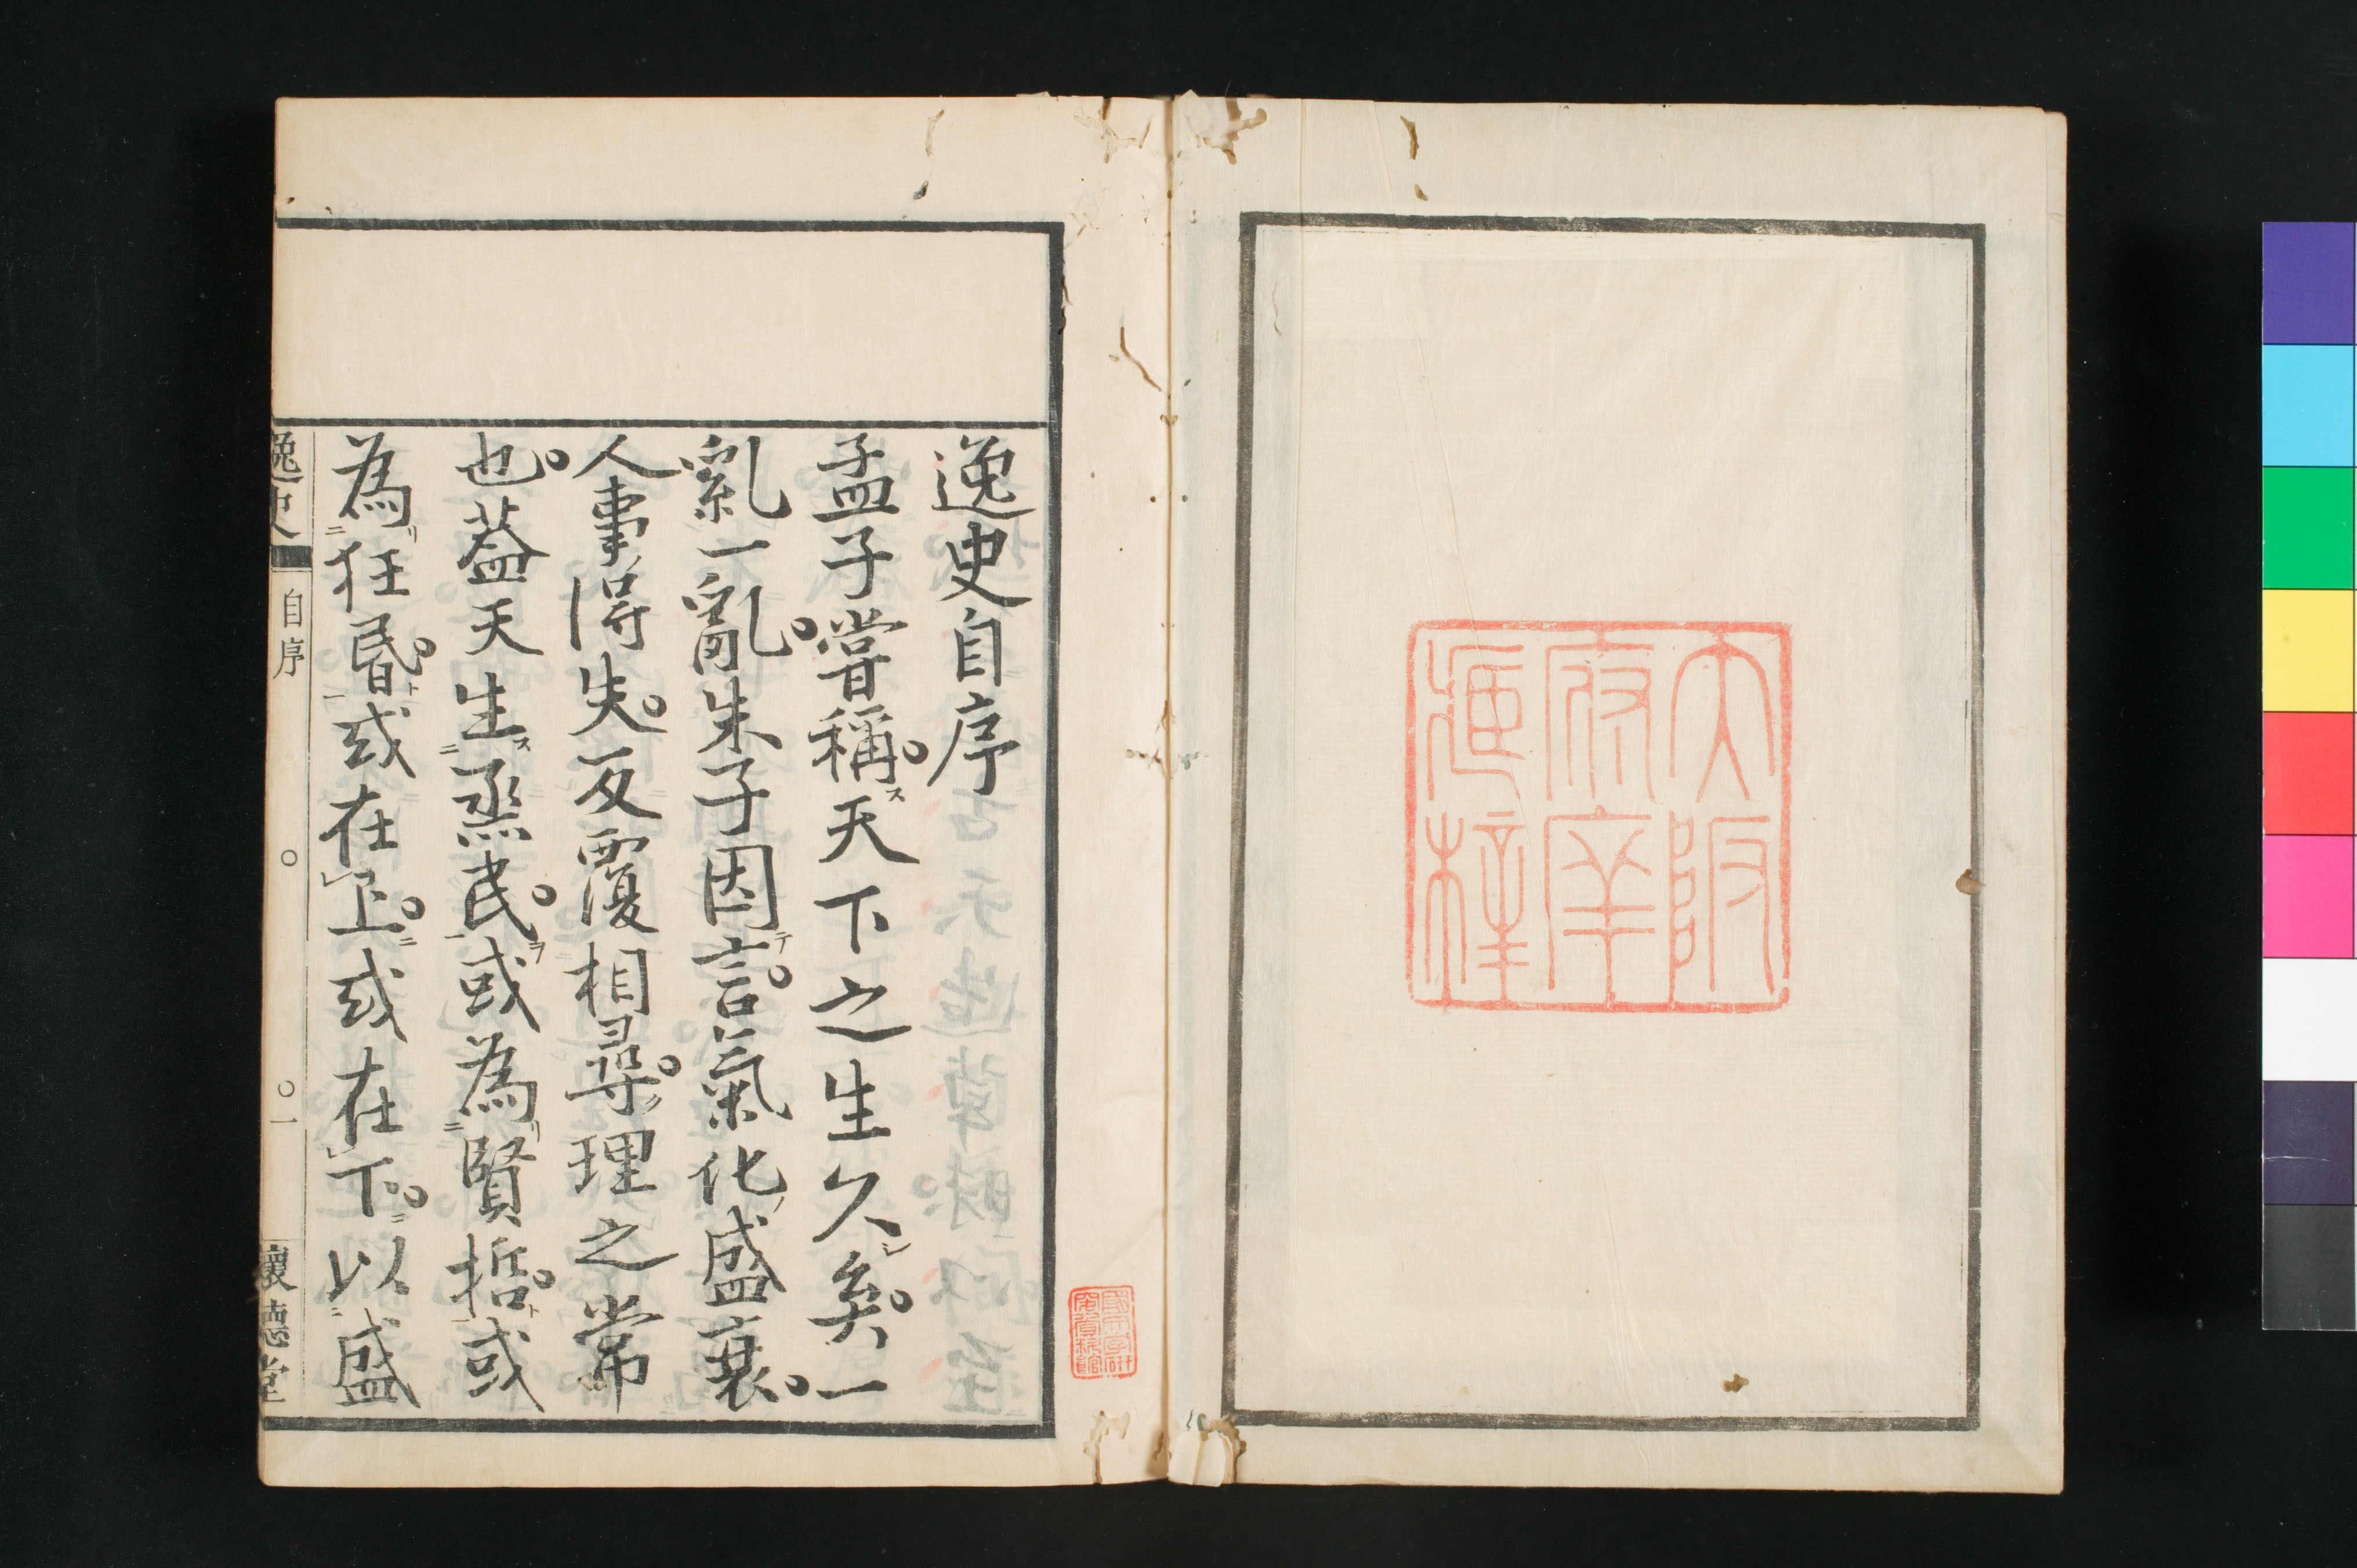 大阪
逸史自序
孟子嘗稱。天下之生久矣。一
乿一亂。朱子因言。氣化盛衰。
人事得失。反覆相尋。理之常
也。蓋天生烝民。或為賢哲。或
為狂昏。或在上。或在下。以盛
逸史
自序
〇
〇一
懷德堂
國文學研
究資料館